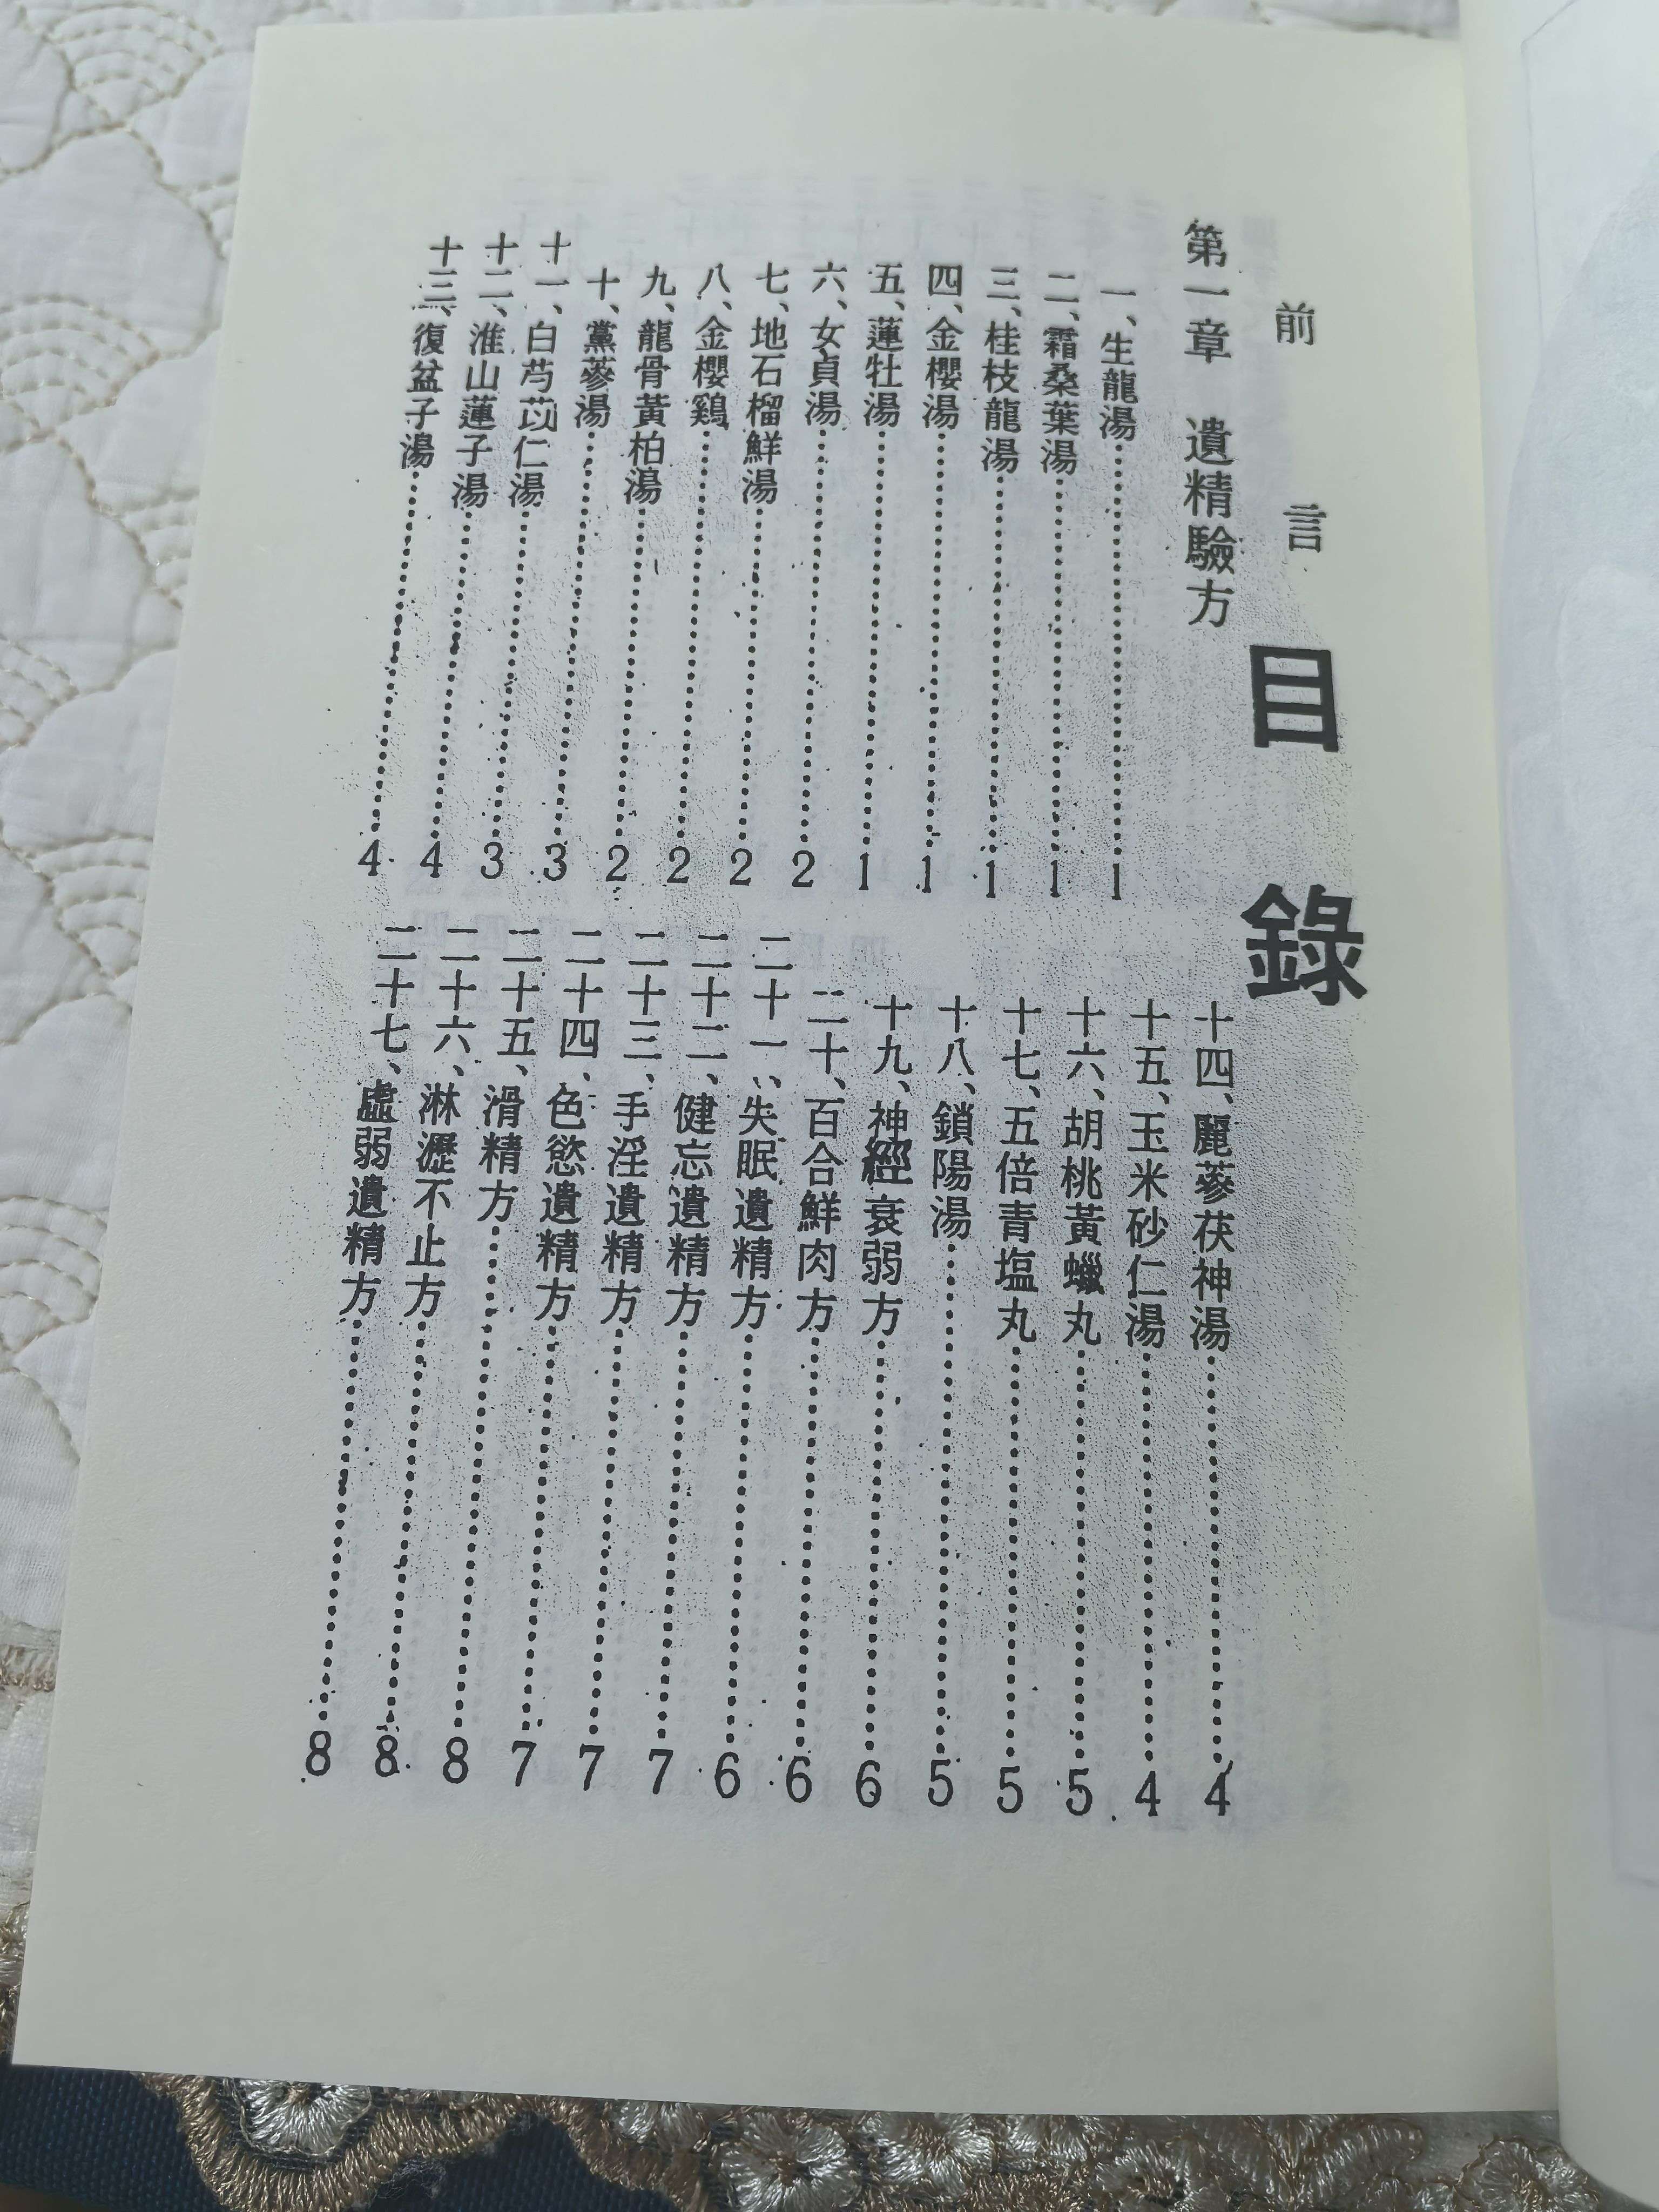 目錄
前言
第一章　遺精驗方
一、生龍湯 1
二、霜桑葉湯 1
三、桂枝龍湯 1
四、金櫻湯 1
五、蓮牡湯 1
六、女貞湯 2
七、地石榴鮮湯 2
八、金櫻鷄 2
九、龍骨黃柏湯 2
十、黨蔘湯 3
十一、白芍苡仁湯 3
十二、淮山蓮子湯 4
十三、復盆子湯 4
十四、麗蔘茯神湯 4
十五、玉米砂仁湯 4
十六、胡桃黃蠟丸 5
十七、五倍青塩丸 5
十八、鎖陽湯 5
十九、神經衰弱方 6
二十、百合鮮肉方 6
二十一、失眠遺精方 6
二十二、健忘遺精方 7
二十三、手淫遺精方 7
二十四、色慾遺精方 7
二十五、滑精方 8
二十六、淋瀝不止方 8
二十七、虛弱遺精方 8